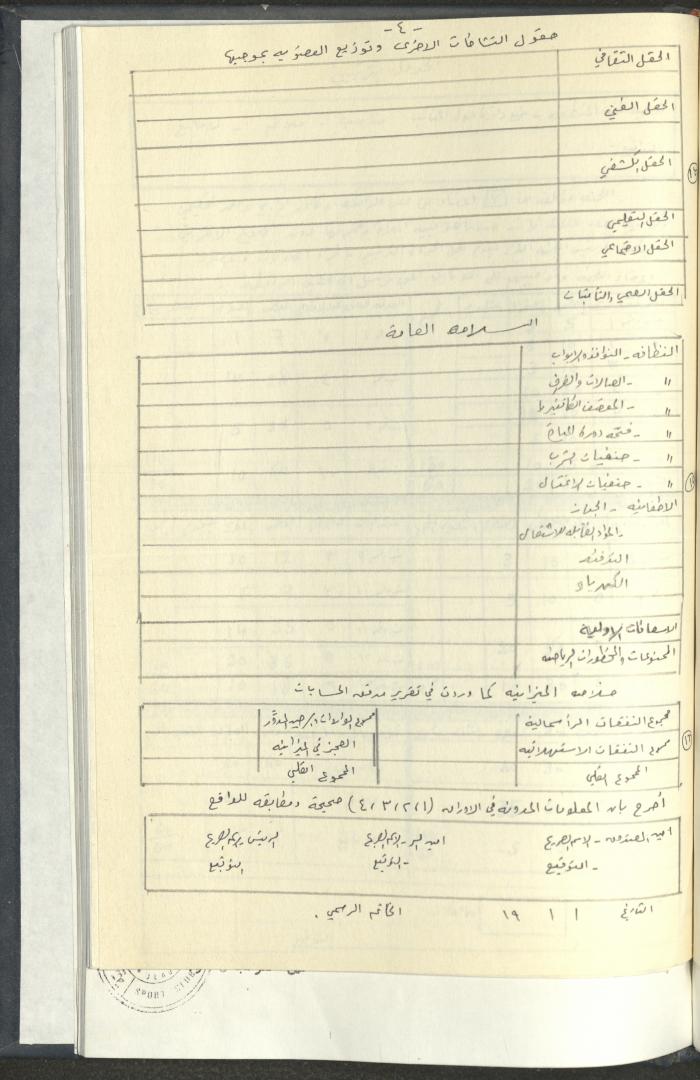 - ٤ -
حقول النشاطات الاخرى وتوزيع العضوية بموجبها
الحقل الثقافي
الحقل الفني
الحقل الكشفي
الحقل التعليمي
الحقل الاجتماعي
الحقل الصحي والتأمينات
السلامه العامة
النظافه - النوافذ والابواب
" - الصالات والغرف
" - المقصف الكافتيريا
" - دورة المياة
" - حنفيات الشرب
" - حنفيات الاغتسال
الاطفائيه - الجهاز
- المواد القابله للاشتعال
الكهرباء
الاسعافات الاولية
الممنوعات والمحظورات الرياضيه
خلاصه الميزانيه كما وردت في تقرير مدقق الحسابات
مجموع النفقات الرأسمالية
مجموع الواردات برصيد المدوَّر
مجموع النفقات الاستهلاكيه
العجز في الميزانيه
المجموع الكلي
المجموع الكلي
أصرح بان المعلومات المدونه في الاوراق (١/٢/٣/٤) صحيحة ومطابقه للواقع
امين الصندوق - الاسم الصريح
امين السر - الاسم الصريح
الرئيس - الاسم الصريح
- التوقيع
- التوقيع
التوقيع
التاريخ / / ١٩
الخاتم الرسمي .